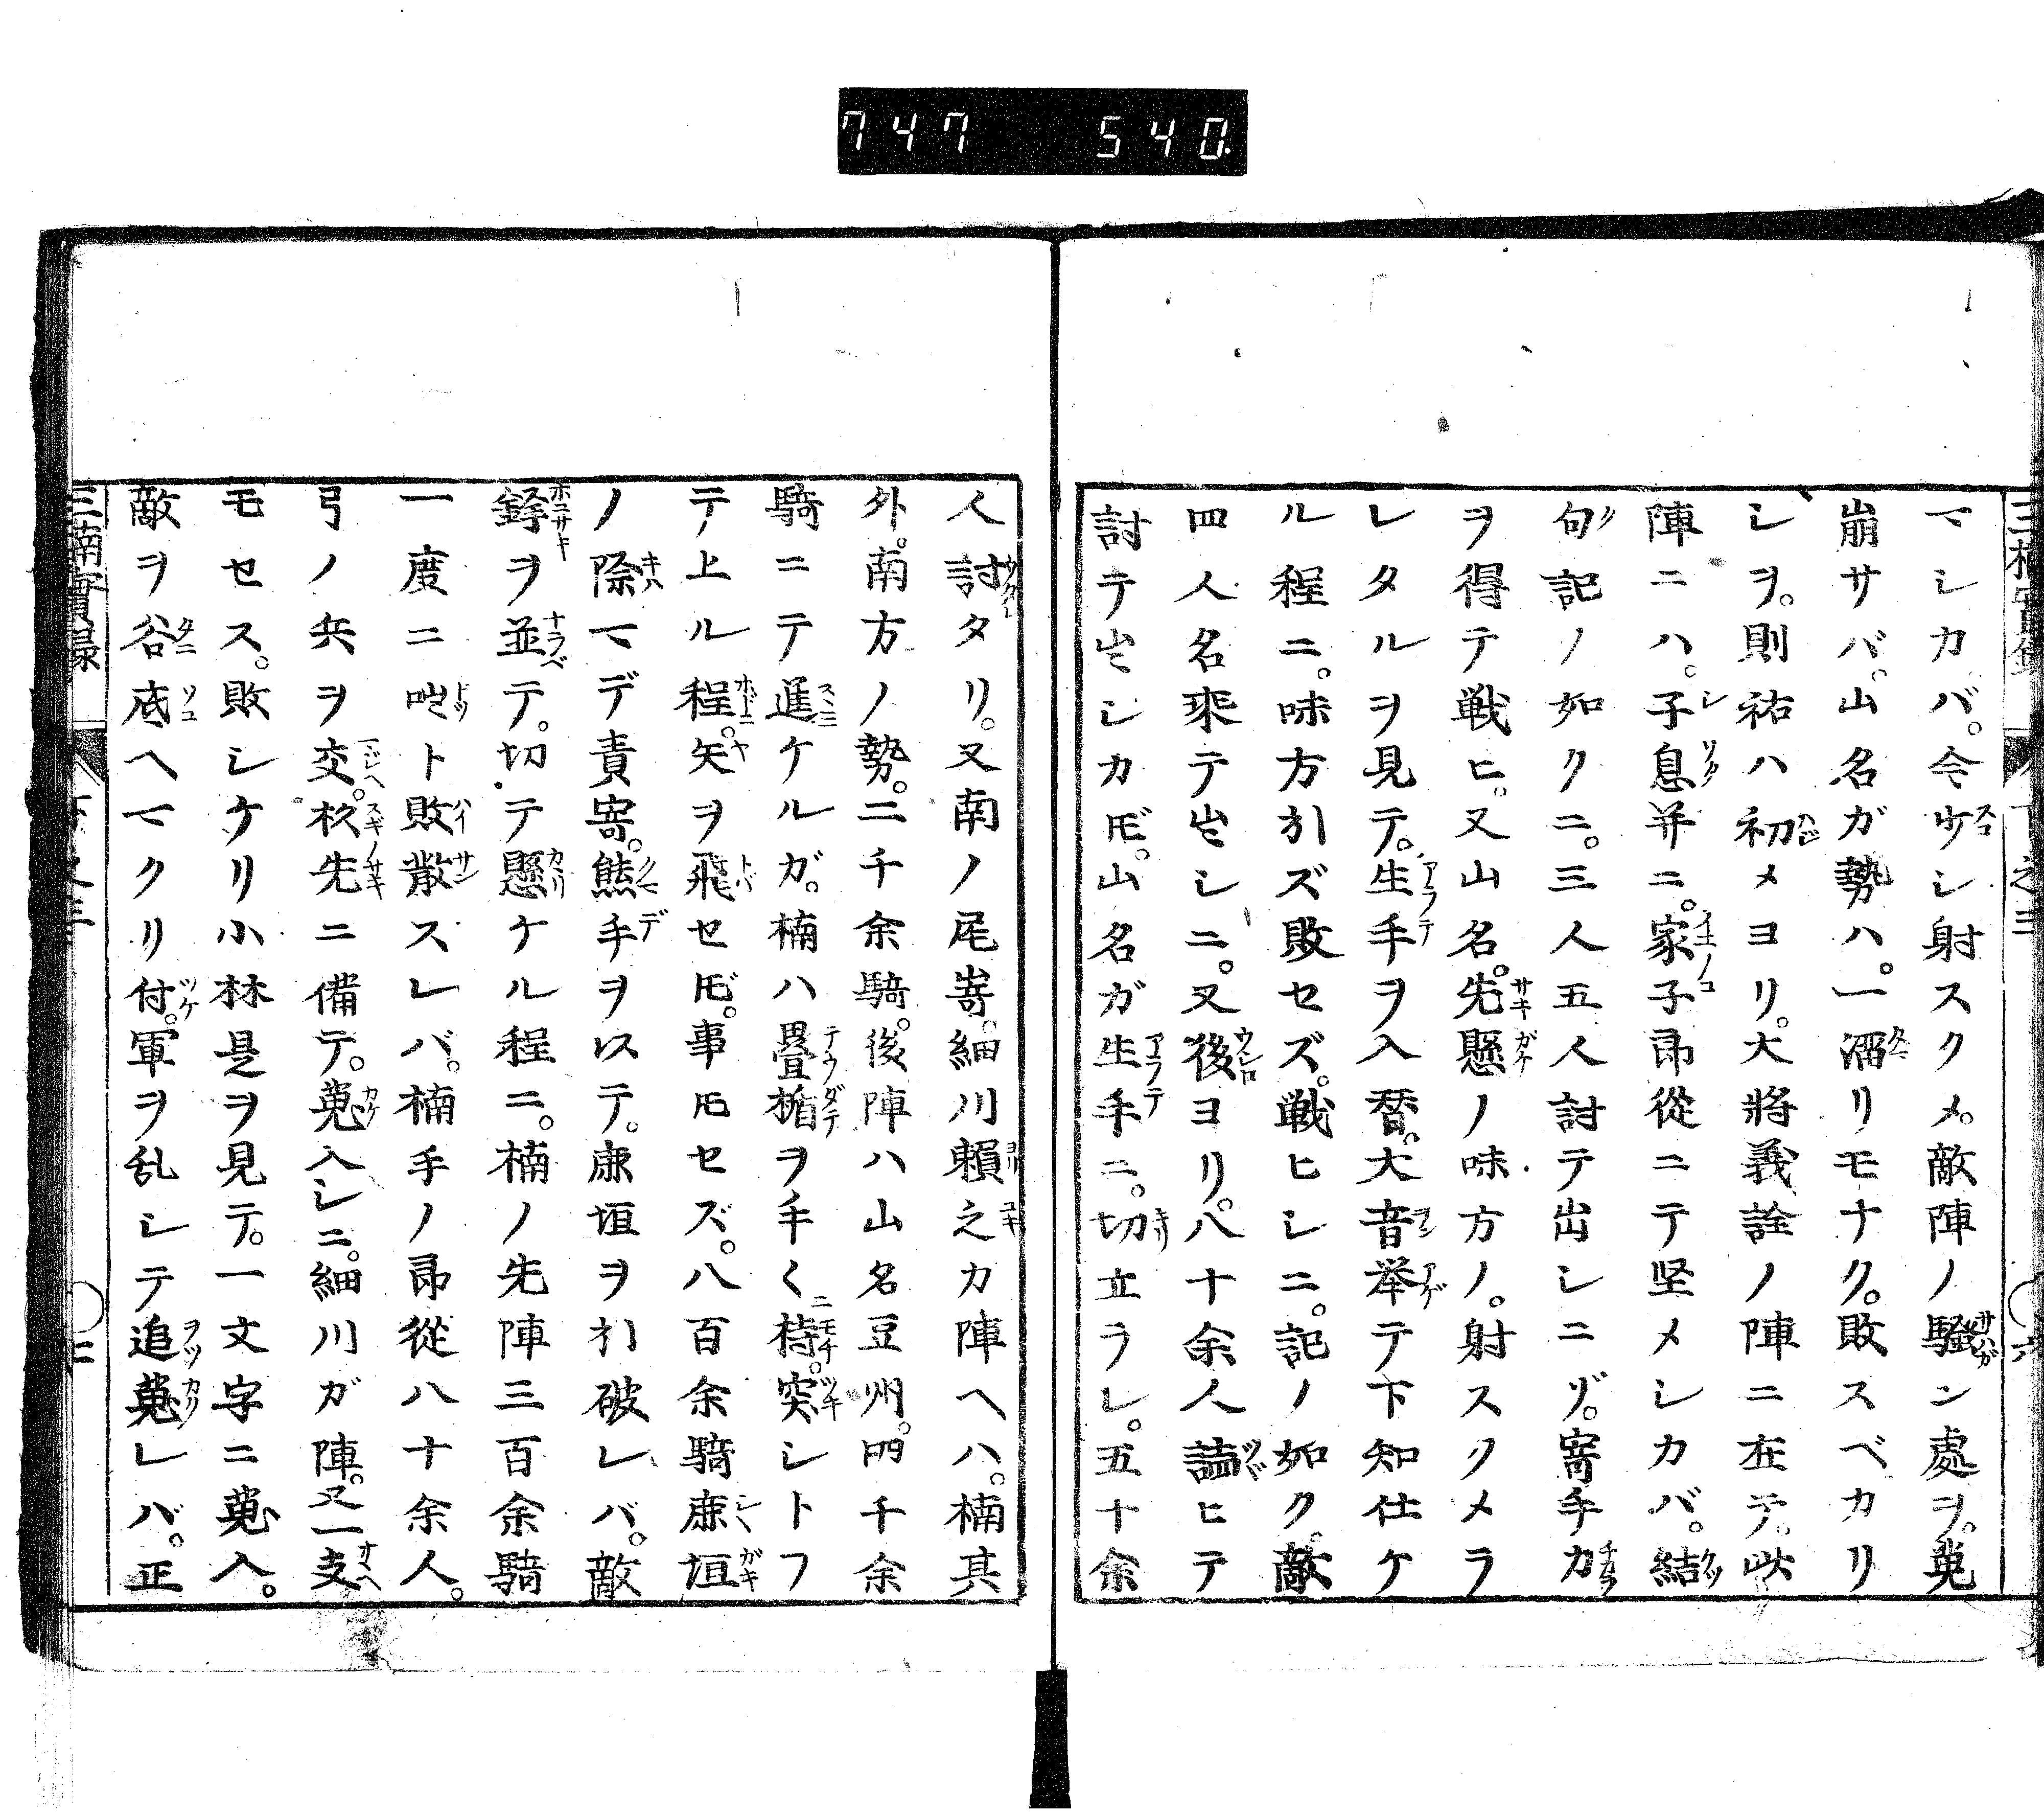 747 540
マシカバ。今少シ射スクメ。敵陣ノ騒ン處ヲ。蒐
崩サバ。山名ガ勢ハ。一溜リモナク。敗スベカリ
シヲ。則祐ハ初メヨリ。大將義詮ノ陣ニ在テ。此
陣ニハ。子息并ニ。家子郎從ニテ堅メシカバ。結
句記ノ如クニ。三人五人討テ出シニゾ。寄手力
ヲ得テ戦ヒ。又山名。先懸ノ味方ノ。射スクメラ
レタルヲ見テ。生手ヲ入替。大音挙テ下知仕ケ
ル程ニ。味方引ズ敗セズ。戦ヒシニ。記ノ如ク。敵
四人名乗テ出シニ。又後ヨリ。八十余人譱ヒテ
討テ出シカ𪜈。山名ガ生手ニ。切立ラレ。五十余
人討タリ。又南ノ尾嵜。細川頼之カ陣ヘハ。楠其
外。南方ノ勢。二千余騎。後陣ハ山名豆州。四千余
騎ニテ進ケルガ。楠ハ畳楯ヲ手〱ニ持。突シトフ
テ上ル程。矢ヲ飛セ𪜈。事𪜈セズ。八百余騎鹿垣
ノ際マデ責寄。熊手ヲ以テ。鹿垣ヲ引破レバ。敵
鋒ヲ並テ。切テ懸ケル程ニ。楠ノ先陣三百余騎
一度ニ咄ト敗散スレバ。楠手ノ郎從八十余人。
弓ノ兵ヲ交。杉先ニ備テ。蒐入シニ。細川ガ陣。又一支
モセス。敗シケリ小林是ヲ見テ。一文字ニ蒐入。
敵ヲ谷底ヘマクリ付。軍ヲ乱シテ追蒐レバ。正